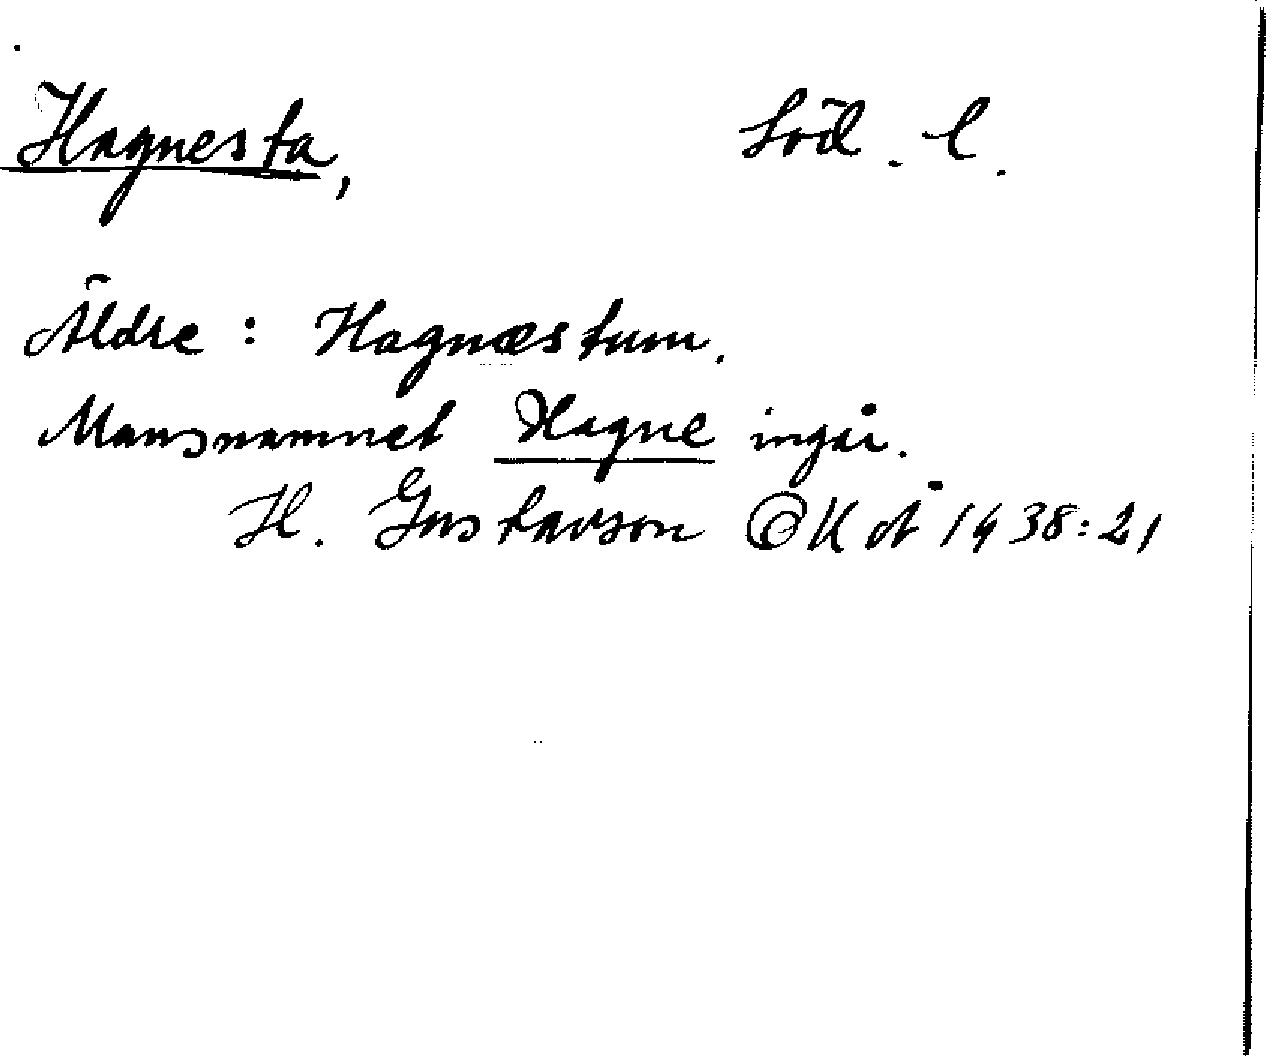 Hagnesta, Söd. l.
Äldre: Hagnæstum.
Mansnamnet Hagne ingår.
H. Gustavson ÖKÅ 1938:21